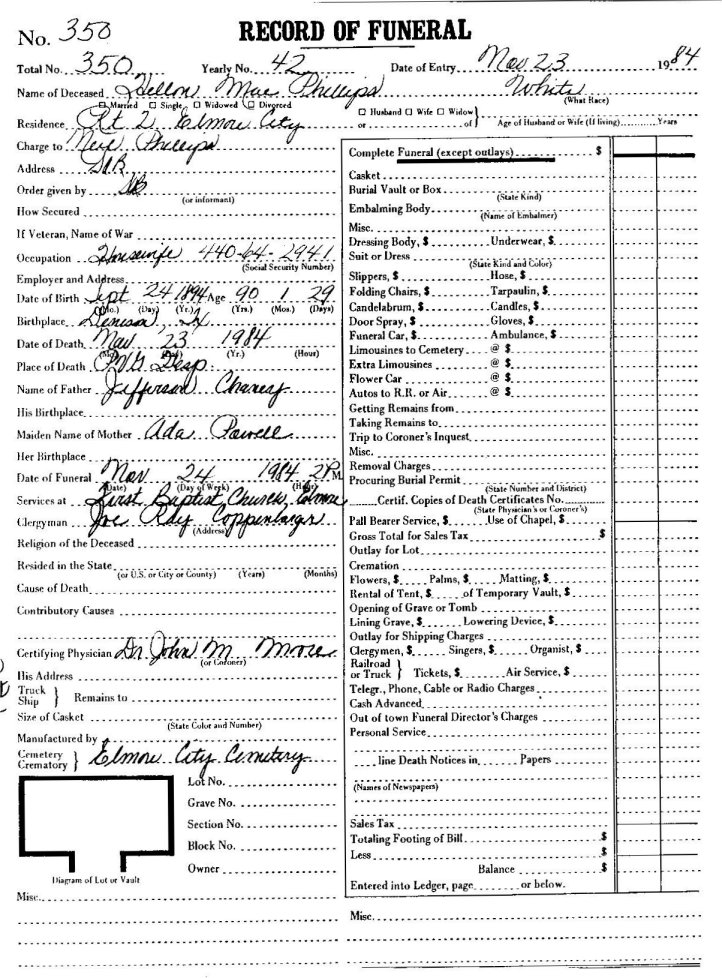 No. 350 RECORD OF FUNERAL
Total No. 350 Yearly No. 42 Date of Entry Nov 23 1984
Name of Deceased Hellon Mae Phillips White
(What Race)
☐ Married ☐ Single ☐ Widowed ☐ Divorced ☐ Husband ☐ Wife ☐ Widow
Residence Rt 2 Elmore City or of Age of Husband or Wife (If living) Years
Charge to Phillips
Address
Order given by
(or informant)
How Secured
If Veteran, Name of War
Occupation Housewife 440-64-2941
(Social Security Number)
Employer and Address
Date of Birth Sept 24 1894 Age 90 1 29
(Mo.) (Day) (Yr.) (Yrs.) (Mos.) (Days)
Birthplace Denison, Tx
Date of Death Nov 23 1984
(Mo.) (Day) (Yr.) (Hour)
Place of Death PVG Hosp
Name of Father Jefferson Chaney
His Birthplace
Maiden Name of Mother Ada Powell
Her Birthplace
Date of Funeral Nov 24 1984 2 P.M.
(Date) (Day of Week) (Hour)
Services at First Baptist Church, Elmore
Clergyman Joe Ray Coppenbarger
(Address)
Religion of the Deceased
Resided in the State
(or U.S. or City or County) (Years) (Months)
Cause of Death
Contributory Causes
Certifying Physician Dr John M Moore
(or Coroner)
His Address
Truck
Ship } Remains to
Size of Casket
(State Color and Number)
Manufactured by
Cemetery
Crematory } Elmore City Cemetery
Lot No.
Grave No.
Section No.
Block No.
Owner
Diagram of Lot or Vault
Misc.
Complete Funeral (except outlays) $
Casket
Burial Vault or Box
(State Kind)
Embalming Body
(Name of Embalmer)
Misc.
Dressing Body, $ Underwear, $
Suit or Dress
(State Kind and Color)
Slippers, $ Hose, $
Folding Chairs, $ Tarpaulin, $
Candelabrum, $ Candles, $
Door Spray, $ Gloves, $
Funeral Car, $ Ambulance, $
Limousines to Cemetery @ $
Extra Limousines @ $
Flower Car @ $
Autos to R.R. or Air @ $
Getting Remains from
Taking Remains to
Trip to Coroner's Inquest
Misc.
Removal Charges
Procuring Burial Permit
(State Number and District)
Certif. Copies of Death Certificates No.
(State Physician's or Coroner's)
Pall Bearer Service, $ Use of Chapel, $
Gross Total for Sales Tax $
Outlay for Lot
Cremation
Flowers, $ Palms, $ Matting, $
Rental of Tent, $ of Temporary Vault, $
Opening of Grave or Tomb
Lining Grave, $ Lowering Device, $
Outlay for Shipping Charges
Clergymen, $ Singers, $ Organist, $
Railroad
or Truck } Tickets, $ Air Service, $
Telegr., Phone, Cable or Radio Charges
Cash Advanced
Out of town Funeral Director's Charges
Personal Service
line Death Notices in Papers
(Names of Newspapers)
Sales Tax
Totaling Footing of Bill $
Less $
Balance $
Entered into Ledger, page or below.
Misc.